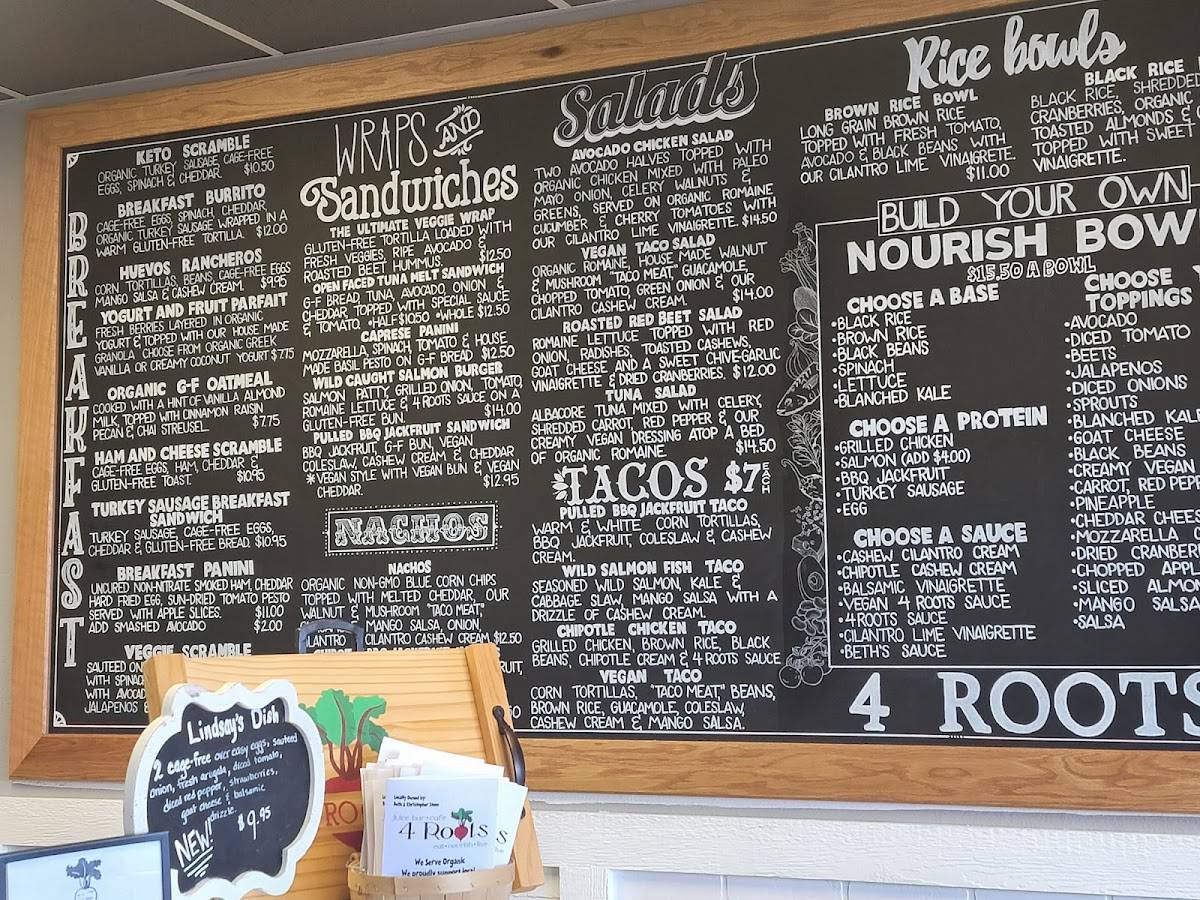 BREAKFAST
KETO SCRAMBLE
ORGANIC TURKEY SAUSAGE, CAGE-FREE
EGGS, SPINACH & CHEDDAR. $10.50
BREAKFAST BURRITO
CAGE-FREE EGGS, SPINACH, CHEDDAR,
ORGANIC TURKEY SAUSAGE WRAPPED IN A
WARM GLUTEN-FREE TORTILLA. $12.00
HUEVOS RANCHEROS
CORN TORTILLAS, BEANS, CAGE-FREE EGGS
MANGO SALSA & CASHEW CREAM. $9.95
YOGURT AND FRUIT PARFAIT
FRESH BERRIES LAYERED IN ORGANIC
YOGURT & TOPPED WITH OUR HOUSE MADE
GRANOLA CHOOSE FROM ORGANIC GREEK
VANILLA OR CREAMY COCONUT YOGURT $7.75
ORGANIC G-F OATMEAL
COOKED WITH A HINT OF VANILLA ALMOND
MILK, TOPPED WITH CINNAMON RAISIN
PECAN & CHAI STREUSEL. $7.75
HAM AND CHEESE SCRAMBLE
CAGE-FREE EGGS, HAM, CHEDDAR &
GLUTEN-FREE TOAST. $10.95
TURKEY SAUSAGE BREAKFAST
SANDWICH
TURKEY SAUSAGE, CAGE-FREE EGGS,
CHEDDAR & GLUTEN-FREE BREAD. $10.95
BREAKFAST PANINI
UNCURED NON-NITRATE SMOKED HAM, CHEDDAR
HARD FRIED EGG, SUN-DRIED TOMATO PESTO
SERVED WITH APPLE SLICES. $11.00
ADD SMASHED AVOCADO $2.00
VEGGIE SCRAMBLE
SAUTEED ON
WITH SPINAC
WITH AVOCAD
JALAPENOS &
WRAPS AND
Sandwiches
THE ULTIMATE VEGGIE WRAP
GLUTEN-FREE TORTILLA LOADED WITH
FRESH VEGGIES, RIPE AVOCADO &
ROASTED BEET HUMMUS. $12.50
OPEN FACED TUNA MELT SANDWICH
G-F BREAD, TUNA, AVOCADO, ONION &
CHEDDAR TOPPED WITH SPECIAL SAUCE
& TOMATO. *HALF $10.50 *WHOLE $12.50
CAPRESE PANINI
MOZZARELLA, SPINACH, TOMATO & HOUSE
MADE BASIL PESTO ON G-F BREAD $12.50
WILD CAUGHT SALMON BURGER
SALMON PATTY, GRILLED ONION, TOMATO,
ROMAINE LETTUCE & 4 ROOTS SAUCE ON A
GLUTEN-FREE BUN. $14.00
PULLED BBQ JACKFRUIT SANDWICH
BBQ JACKFRUIT, G-F BUN, VEGAN
COLESLAW, CASHEW CREAM & CHEDDAR
*VEGAN STYLE WITH VEGAN BUN & VEGAN
CHEDDAR. $12.95
NACHOS
NACHOS
ORGANIC NON-GMO BLUE CORN CHIPS
TOPPED WITH MELTED CHEDDAR, OUR
WALNUT & MUSHROOM "TACO MEAT,"
MANGO SALSA, ONION,
CILANTRO & CILANTRO CASHEW CREAM $12.50
Salads
AVOCADO CHICKEN SALAD
TWO AVOCADO HALVES TOPPED WITH
ORGANIC CHICKEN MIXED WITH PALEO
MAYO ONION, CELERY WALNUTS &
GREENS, SERVED ON ORGANIC ROMAINE
CUCUMBER & CHERRY TOMATOES WITH
OUR CILANTRO LIME VINAIGRETTE. $14.50
VEGAN TACO SALAD
ORGANIC ROMAINE, HOUSE MADE WALNUT
& MUSHROOM "TACO MEAT," GUACAMOLE
CHOPPED TOMATO, GREEN ONION & OUR
CILANTRO CASHEW CREAM. $14.00
ROASTED RED BEET SALAD
ROMAINE LETTUCE TOPPED WITH RED
ONION, RADISHES, TOASTED CASHEWS,
GOAT CHEESE AND A SWEET CHIVE-GARLIC
VINAIGRETTE & DRIED CRANBERRIES. $12.00
TUNA SALAD
ALBACORE TUNA MIXED WITH CELERY,
SHREDDED CARROT, RED PEPPER & OUR
CREAMY VEGAN DRESSING ATOP A BED
OF ORGANIC ROMAINE. $14.50
TACOS $7 EACH
PULLED BBQ JACKFRUIT TACO
WARM & WHITE CORN TORTILLAS,
BBQ JACKFRUIT, COLESLAW & CASHEW
CREAM.
WILD SALMON FISH TACO
SEASONED WILD SALMON, KALE &
CABBAGE SLAW, MANGO SALSA WITH A
DRIZZLE OF CASHEW CREAM.
CHIPOTLE CHICKEN TACO
GRILLED CHICKEN, BROWN RICE, BLACK
BEANS, CHIPOTLE CREAM & 4 ROOTS SAUCE
VEGAN TACO
CORN TORTILLAS, "TACO MEAT," BEANS,
BROWN RICE, GUACAMOLE, COLESLAW,
CASHEW CREAM & MANGO SALSA.
Rice bowls
BROWN RICE BOWL
LONG GRAIN BROWN RICE
TOPPED WITH FRESH TOMATO,
AVOCADO & BLACK BEANS WITH
OUR CILANTRO LIME VINAIGRETTE.
$11.00
BLACK RICE
BLACK RICE, SHREDDED
CRANBERRIES, ORGANIC
TOASTED ALMONDS &
TOPPED WITH SWEET
VINAIGRETTE.
BUILD YOUR OWN
NOURISH BOW
$15.50 A BOWL
CHOOSE A BASE
•BLACK RICE
•BROWN RICE
•BLACK BEANS
•SPINACH
•LETTUCE
•BLANCHED KALE
CHOOSE A PROTEIN
•GRILLED CHICKEN
•SALMON (ADD $4.00)
•BBQ JACKFRUIT
•TURKEY SAUSAGE
•EGG
CHOOSE A SAUCE
•CASHEW CILANTRO CREAM
•CHIPOTLE CASHEW CREAM
•BALSAMIC VINAIGRETTE
•VEGAN 4 ROOTS SAUCE
•4 ROOTS SAUCE
•CILANTRO LIME VINAIGRETTE
•BETH'S SAUCE
CHOOSE
TOPPINGS
•AVOCADO
•DICED TOMATO
•BEETS
•JALAPENOS
•DICED ONIONS
•SPROUTS
•BLANCHED KAL
•GOAT CHEESE
•BLACK BEANS
•CREAMY VEGAN
•CARROT, RED PEPP
•PINEAPPLE
•CHEDDAR CHEES
•MOZZARELLA
•DRIED CRANBERR
•CHOPPED APPL
•SLICED ALMO
•MANGO SALSA
•SALSA
4 ROOTS
Lindsay's Dish
2 cage-free over easy eggs, sauteed
onion, fresh arugala, diced tomato,
diced red pepper, strawberries,
goat cheese & balsamic
drizzle.
NEW! $9.95
Locally Owned by:
juice bar • cafe
4 Roots
eat • nourish • live
We Serve Organic
We proudly support local